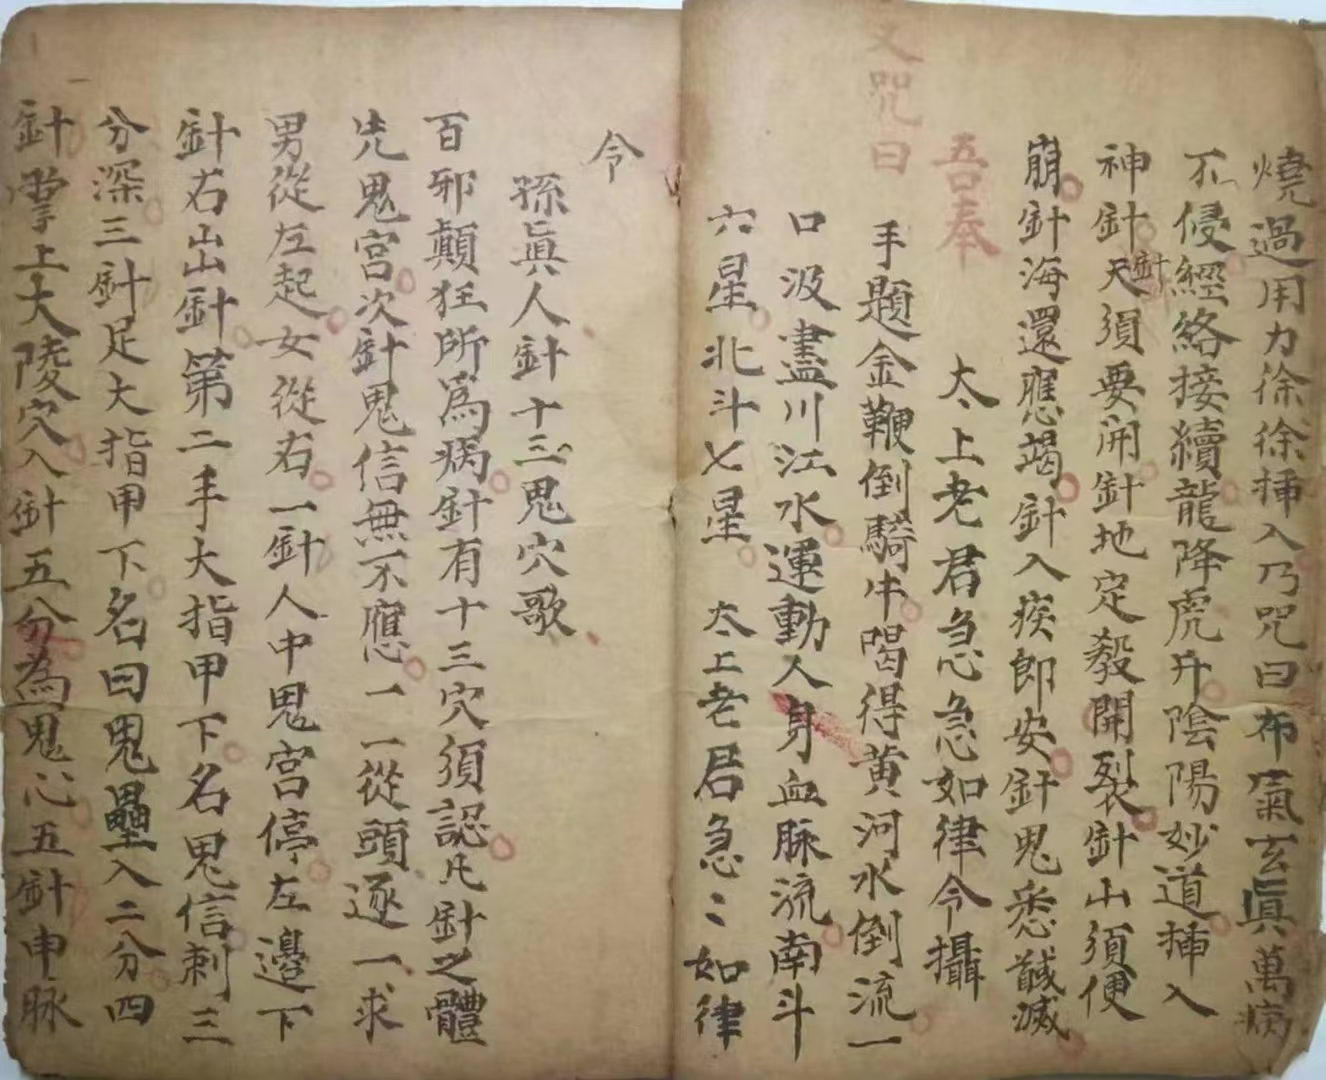 燒過用力徐徐揷入乃咒曰布氣玄眞萬病
不侵經絡接續龍降虎升陰陽妙道揷入
神針針天須要開針地定殺開裂針山須便
崩針海還應竭針入疾郎安針鬼悉馘滅
吾奉
太上老君急急如律令攝
又咒曰
手題金鞭倒騎牛喝得黄河水倒流一
口汲盡川江水運動人身血脉流南斗
六星北斗七星　太上老君急〻如律
令
孫眞人針十三鬼穴歌
百邪顛狂所為病針有十三穴須認凡針之體
先鬼宫次針鬼信無不應一一從頭逐一求
男從左起女從右一針人中鬼宫停左邊下
針右出針第二手大指甲下名鬼信刺三
分深三針足大指甲下名曰鬼壘入二分四
針掌上大陵穴入針五分為鬼心五針申脉